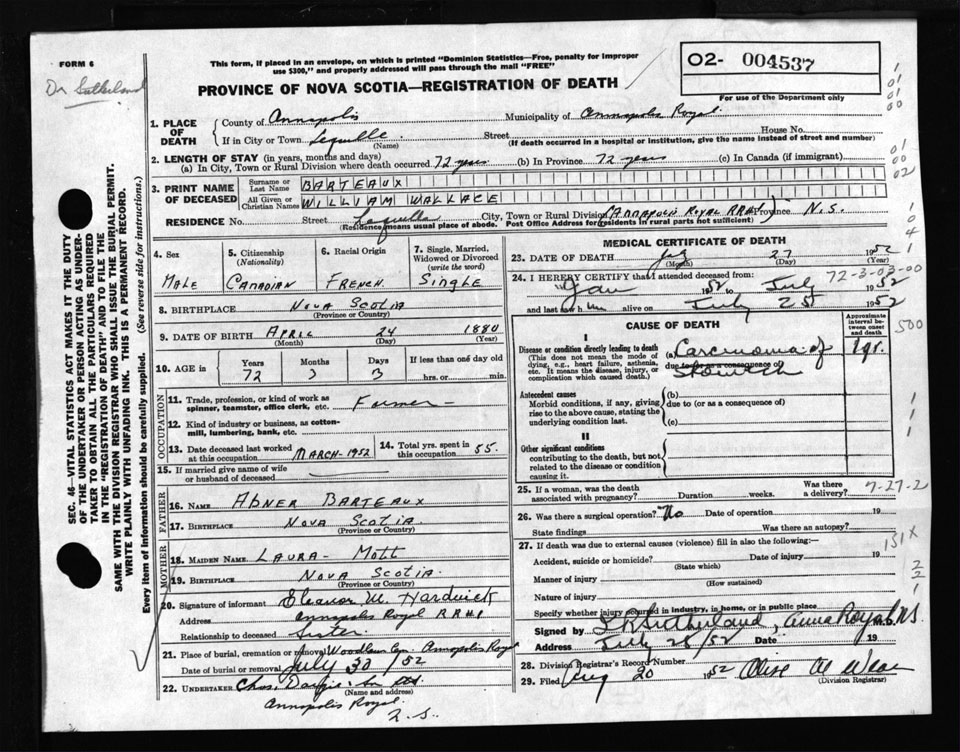 FORM 6
Dr Sutherland
This form, if placed in an envelope, on which is printed "Dominion Statistics—Free, penalty for improper
use $300," and properly addressed will pass through the mail "FREE"
02- 004537
For use of the Department only
PROVINCE OF NOVA SCOTIA—REGISTRATION OF DEATH
1. PLACE OF DEATH
County of Annapolis Municipality of Annapolis Royal
If in City or Town Lequille Street House No.
(Name) (If death occurred in a hospital or institution, give the name instead of street and number)
2. LENGTH OF STAY (in years, months and days)
(a) In City, Town or Rural Division where death occurred 72 years (b) In Province 72 years (c) In Canada (if immigrant)
3. PRINT NAME OF DECEASED
Surname or Last Name BARTEAUX
All Given or Christian Names WILLIAM WALLACE
RESIDENCE No. Street Lequille City, Town or Rural Division Annapolis Royal RR#1 Province N.S.
(Residence means usual place of abode. Post Office Address for residents in rural parts not sufficient)
4. Sex
Male
5. Citizenship
(Nationality)
Canadian
6. Racial Origin
French
7. Single, Married,
Widowed or Divorced
(write the word)
Single
8. BIRTHPLACE Nova Scotia
(Province or Country)
9. DATE OF BIRTH April 24 1880
(Month) (Day) (Year)
10. AGE in
Years Months Days If less than one day old
72 3 3 hrs. or min.
OCCUPATION
11. Trade, profession, or kind of work as
spinner, teamster, office clerk, etc. Farmer
12. Kind of industry or business, as cotton-
mill, lumbering, bank, etc.
13. Date deceased last worked
at this occupation MARCH-1952
14. Total yrs. spent in
this occupation 55.
15. If married give name of wife
or husband of deceased
FATHER
16. NAME Abner Barteaux
17. BIRTHPLACE Nova Scotia.
(Province or Country)
MOTHER
18. MAIDEN NAME. Laura- Mott
19. BIRTHPLACE Nova Scotia.
(Province or Country)
20. Signature of informant Eleanor M. Hardwick
Address Annapolis Royal RR#1
Relationship to deceased Sister.
21. Place of burial, cremation or removal Woodlawn Cem. Annapolis Royal
Date of burial or removal July 30/52
22. UNDERTAKER Chas. Dargie
(Name and address)
Annapolis Royal.
MEDICAL CERTIFICATE OF DEATH
23. DATE OF DEATH July 27 1952
(Month) (Day)
24. I HEREBY CERTIFY that I attended deceased from:
72-3-03-00
Jan 1952 to July 1952
and last saw him alive on July 25 1952
CAUSE OF DEATH
Approximate interval between onset and death
I
Disease or condition directly leading to death
(This does not mean the mode of
dying, e.g., heart failure, asthenia,
etc. It means the disease, injury, or
complication which caused death.)
(a) Carcinoma of 1 yr.
due to (or as a consequence of)
Stomach
Antecedent causes
Morbid conditions, if any, giving
rise to the above cause, stating the
underlying condition last.
(b)
due to (or as a consequence of)
(c)
II
Other significant conditions
contributing to the death, but not
related to the disease or condition
causing it.
25. If a woman, was the death
associated with pregnancy? Duration weeks. Was there a delivery?
7-27-2
26. Was there a surgical operation? No Date of operation 19
State findings Was there an autopsy?
27. If death was due to external causes (violence) fill in also the following:—
151X
Accident, suicide or homicide? Date of injury 19
(State which)
Manner of injury
(How sustained)
Nature of injury
Specify whether injury occurred in industry, in home, or in public place
Signed by Sutherland, Anna Royal NS.
Address July 28/52 Date 19
28. Division Registrar's Record Number
29. Filed Aug 20 1952
(Division Registrar)
SEC. 46—VITAL STATISTICS ACT MAKES IT THE DUTY
OF THE UNDERTAKER OR PERSON ACTING AS UNDER-
TAKER TO OBTAIN ALL THE PARTICULARS REQUIRED
IN THE "REGISTRATION OF DEATH" AND TO FILE THE
SAME WITH THE DIVISION REGISTRAR WHO SHALL ISSUE THE BURIAL PERMIT.
WRITE PLAINLY WITH UNFADING INK. THIS IS A PERMANENT RECORD.
Every item of information should be carefully supplied. (See reverse side for instructions.)